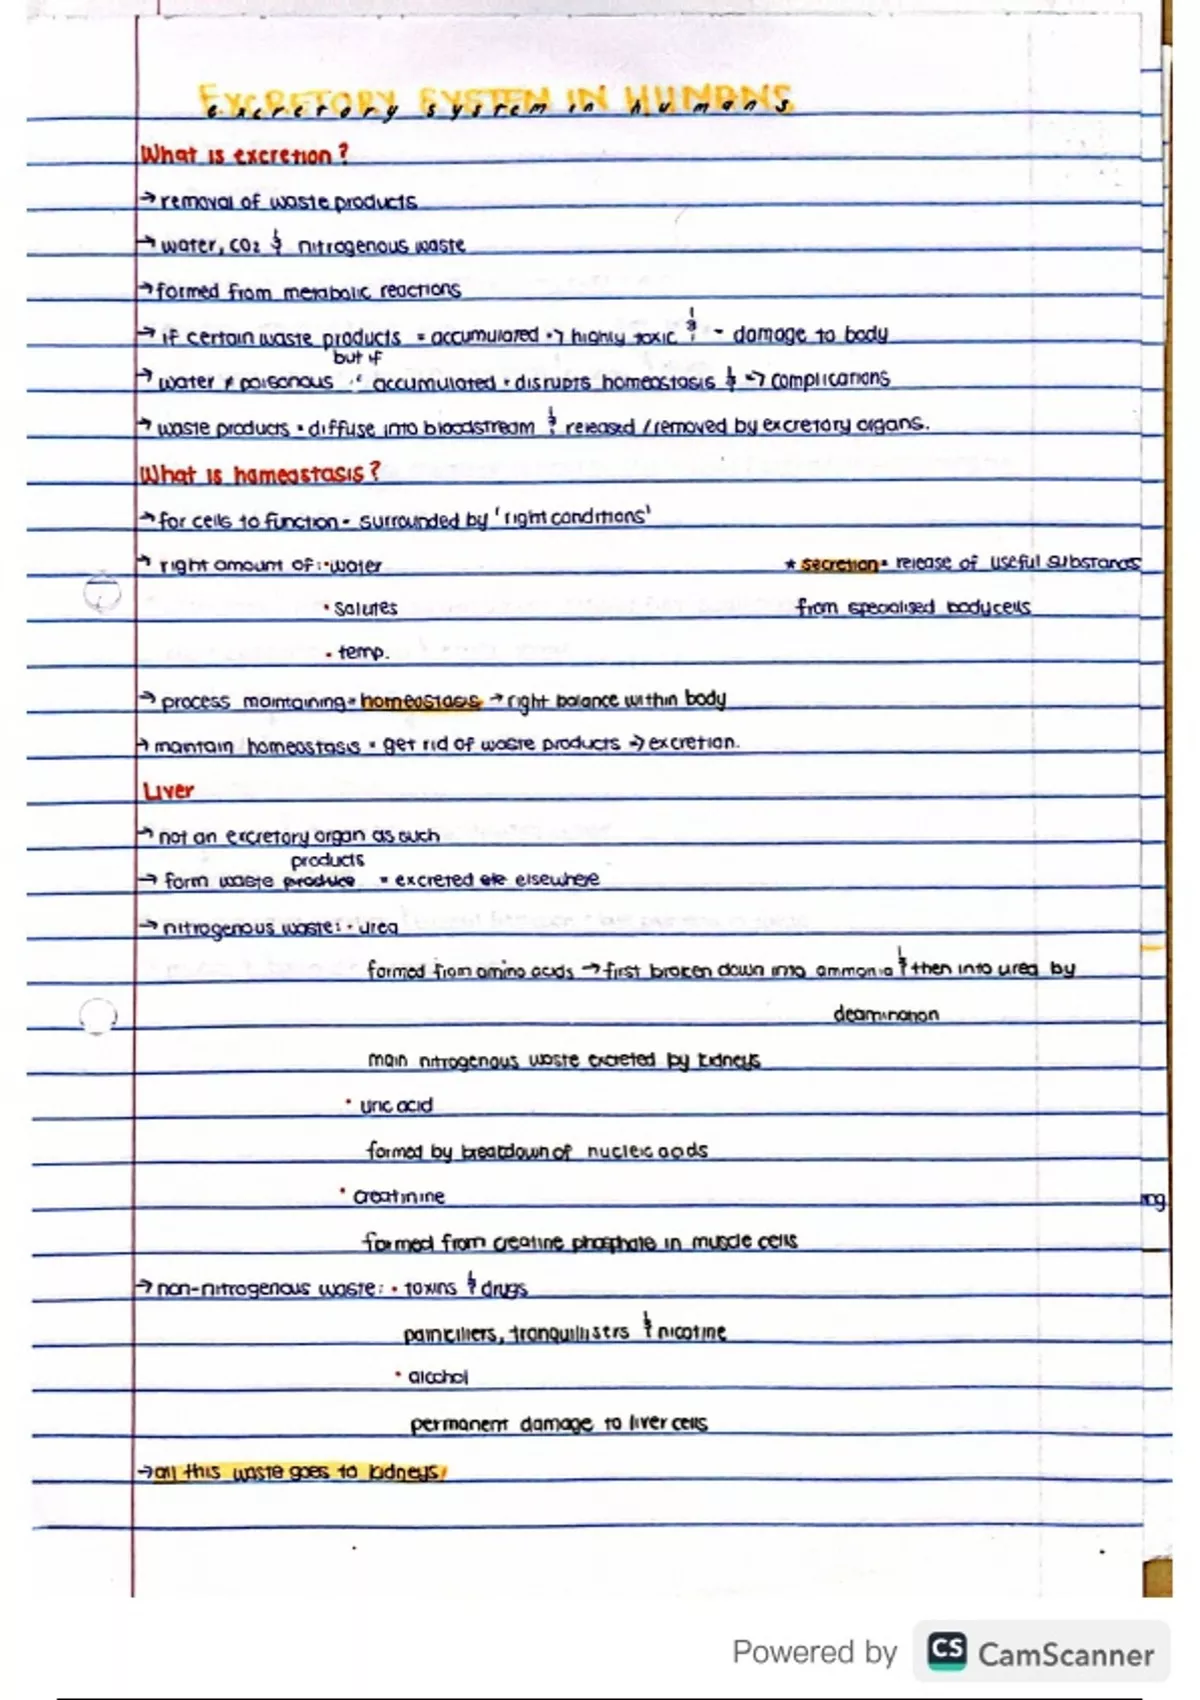 EXCRETORY SYSTEM IN HUMANS
What is excretion?
→ removal of waste products
→ water, CO2 & nitrogenous waste
→ formed from metabolic reactions
→ if certain waste products = accumulated → highly toxic & - damage to body
but if
→ water ≠ poisonous accumulated = disrupts homeostasis & → complications
→ waste products = diffuse into bloodstream & released / removed by excretory organs.
What is homeostasis?
→ for cells to function - surrounded by 'right conditions'
→ right amount of: • water
* secretion = release of useful substances
• solutes
from specialised body cells
• temp.
→ process maintaining = homeostasis → right balance within body
→ mantain homeostasis = get rid of waste products → excretion.
Liver
→ not an excretory organ as such
products
→ form waste produce = excreted elsewhere
→ nitrogenous waste: • urea
formed from amino acids → first broken down into ammonia & then into urea by
deamination
main nitrogenous waste excreted by kidneys
• uric acid
formed by breakdown of nucleic acids
• creatinine
formed from creatine phosphate in muscle cells
→ non-nitrogenous waste: • toxins & drugs
painkillers, tranquilisers & nicotine
• alcohol
permanent damage to liver cells
→ all this waste goes to kidneys!
Powered by CS CamScanner